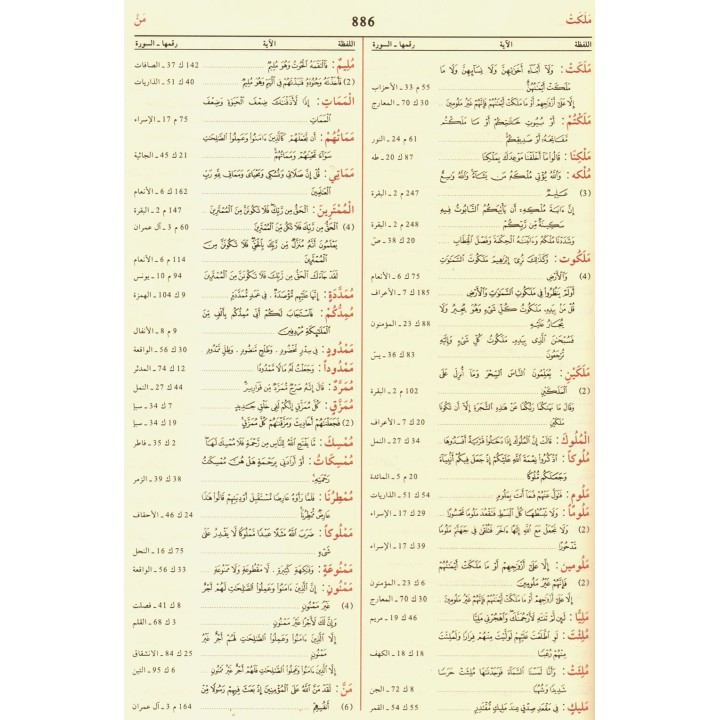 مَلَكَتْ
886
مَنَّ
اللفظة الآية رقمها ـ السورة
مَلَكَتْ : وَلَآ أَبْنَآءِ أَخَوَٰتِهِنَّ وَلَا نِسَآئِهِنَّ وَلَا مَا
مَلَكَتْ أَيْمَٰنُهُنَّ 55 م 33 ـ الأحزاب
إِلَّا عَلَىٰٓ أَزْوَٰجِهِمْ أَوْ مَا مَلَكَتْ أَيْمَٰنُهُمْ فَإِنَّهُمْ غَيْرُ مَلُومِينَ 30 ك 70 ـ المعارج
مَلَكْتُمْ : أَوْ بُيُوتِ خَٰلَٰتِكُمْ أَوْ مَا مَلَكْتُم
مَّفَاتِحَهُۥٓ أَوْ صَدِيقِكُمْ 61 م 24 ـ النور
مَلْكِنَا : قَالُوا۟ مَآ أَخْلَفْنَا مَوْعِدَكَ بِمَلْكِنَا 87 ك 20 ـ طه
مُلْكَه : وَٱللَّهُ يُؤْتِى مُلْكَهُۥ مَن يَشَآءُ وَٱللَّهُ وَٰسِعٌ
(3) عَلِيمٌ 247 م 2 ـ البقرة
إِنَّ ءَايَةَ مُلْكِهِۦٓ أَن يَأْتِيَكُمُ ٱلتَّابُوتُ فِيهِ
سَكِينَةٌ مِّن رَّبِّكُمْ 248 م 2 ـ البقرة
وَشَدَدْنَا مُلْكَهُۥ وَءَاتَيْنَٰهُ ٱلْحِكْمَةَ وَفَصْلَ ٱلْخِطَابِ 20 ك 38 ـ صٓ
مَلَكُوت : وَكَذَٰلِكَ نُرِىٓ إِبْرَٰهِيمَ مَلَكُوتَ ٱلسَّمَٰوَٰتِ
(4) وَٱلْأَرْضِ 75 ك 6 ـ الأنعام
أَوَلَمْ يَنظُرُوا۟ فِى مَلَكُوتِ ٱلسَّمَٰوَٰتِ وَٱلْأَرْضِ 185 ك 7 ـ الأعراف
قُلْ مَنۢ بِيَدِهِۦ مَلَكُوتُ كُلِّ شَىْءٍ وَهُوَ يُجِيرُ وَلَا
يُجَارُ عَلَيْهِ 88 ك 23 ـ المؤمنون
فَسُبْحَٰنَ ٱلَّذِى بِيَدِهِۦ مَلَكُوتُ كُلِّ شَىْءٍ وَإِلَيْهِ
تُرْجَعُونَ 83 ك 36 ـ يسٓ
مَلَكَيْنِ : يُعَلِّمُونَ ٱلنَّاسَ ٱلسِّحْرَ وَمَآ أُنزِلَ عَلَى
(2) ٱلْمَلَكَيْنِ 102 م 2 ـ البقرة
وَقَالَ مَا نَهَىٰكُمَا رَبُّكُمَا عَنْ هَٰذِهِ ٱلشَّجَرَةِ إِلَّآ أَن تَكُونَا
مَلَكَيْنِ 20 ك 7 ـ الأعراف
الْمُلُوكَ : قَالَتْ إِنَّ ٱلْمُلُوكَ إِذَا دَخَلُوا۟ قَرْيَةً أَفْسَدُوهَا 34 ك 27 ـ النمل
مُلُوكاً : ٱذْكُرُوا۟ نِعْمَةَ ٱللَّهِ عَلَيْكُمْ إِذْ جَعَلَ فِيكُمْ أَنۢبِيَآءَ
وَجَعَلَكُم مُّلُوكًا 20 م 5 ـ المائدة
مَلُوم : فَتَوَلَّ عَنْهُمْ فَمَآ أَنتَ بِمَلُومٍ 54 ك 51 ـ الذاريات
مَلُوماً : وَلَا تَبْسُطْهَا كُلَّ ٱلْبَسْطِ فَتَقْعُدَ مَلُومًا مَّحْسُورًا 29 ك 17 ـ الإسراء
(2) وَلَا تَجْعَلْ مَعَ ٱللَّهِ إِلَٰهًا ءَاخَرَ فَتُلْقَىٰ فِى جَهَنَّمَ مَلُومًا
مَّدْحُورًا 39 ك 17 ـ الإسراء
مَلُومين : إِلَّا عَلَىٰٓ أَزْوَٰجِهِمْ أَوْ مَا مَلَكَتْ أَيْمَٰنُهُمْ
(2) فَإِنَّهُمْ غَيْرُ مَلُومِينَ 6 ك 23 ـ المؤمنون
إِلَّا عَلَىٰٓ أَزْوَٰجِهِمْ أَوْ مَا مَلَكَتْ أَيْمَٰنُهُمْ فَإِنَّهُمْ غَيْرُ مَلُومِينَ 30 ك 70 ـ المعارج
مَلِيًّا : لَئِن لَّمْ تَنتَهِ لَأَرْجُمَنَّكَ وَٱهْجُرْنِى مَلِيًّا 46 ك 19 ـ مريم
مُلِئْتَ : لَوِ ٱطَّلَعْتَ عَلَيْهِمْ لَوَلَّيْتَ مِنْهُمْ فِرَارًا وَلَمُلِئْتَ
مِنْهُمْ رُعْبًا 18 ك 18 ـ الكهف
مُلِئَتْ : وَأَنَّا لَمَسْنَا ٱلسَّمَآءَ فَوَجَدْنَٰهَا مُلِئَتْ حَرَسًا
شَدِيدًا وَشُهُبًا 8 ك 72 ـ الجن
مَلِيكٍ : فِى مَقْعَدِ صِدْقٍ عِندَ مَلِيكٍ مُّقْتَدِرٍۭ 55 ك 54 ـ القمر
اللفظة الآية رقمها ـ السورة
مُلِيمٌ : فَٱلْتَقَمَهُ ٱلْحُوتُ وَهُوَ مُلِيمٌ 142 ك 37 ـ الصافات
(2) فَأَخَذْنَٰهُ وَجُنُودَهُۥ فَنَبَذْنَٰهُمْ فِى ٱلْيَمِّ وَهُوَ مُلِيمٌ 40 ك 51 ـ الذاريات
الْمَمَاتِ : إِذًا لَّأَذَقْنَٰكَ ضِعْفَ ٱلْحَيَوٰةِ وَضِعْفَ
ٱلْمَمَاتِ 75 م 17 ـ الإسراء
مَمَاتُهُمْ : أَن نَّجْعَلَهُمْ كَٱلَّذِينَ ءَامَنُوا۟ وَعَمِلُوا۟ ٱلصَّٰلِحَٰتِ
سَوَآءً مَّحْيَاهُمْ وَمَمَاتُهُمْ 21 ك 45 ـ الجاثية
مَمَاتِي : قُلْ إِنَّ صَلَاتِى وَنُسُكِى وَمَحْيَاىَ وَمَمَاتِى لِلَّهِ رَبِّ
ٱلْعَٰلَمِينَ 162 ك 6 ـ الأنعام
الْمُمْتَرِينَ : ٱلْحَقُّ مِن رَّبِّكَ فَلَا تَكُونَنَّ مِنَ ٱلْمُمْتَرِينَ 147 م 2 ـ البقرة
(4) ٱلْحَقُّ مِن رَّبِّكَ فَلَا تَكُن مِّنَ ٱلْمُمْتَرِينَ 60 م 3 ـ آل عمران
يَعْلَمُونَ أَنَّهُۥ مُنَزَّلٌ مِّن رَّبِّكَ بِٱلْحَقِّ فَلَا تَكُونَنَّ مِنَ
ٱلْمُمْتَرِينَ 114 م 6 ـ الأنعام
لَقَدْ جَآءَكَ ٱلْحَقُّ مِن رَّبِّكَ فَلَا تَكُونَنَّ مِنَ ٱلْمُمْتَرِينَ 94 م 10 ـ يونس
مُمَدَّدَةٍ : إِنَّهَا عَلَيْهِم مُّؤْصَدَةٌ . فِى عَمَدٍ مُّمَدَّدَةٍۭ 9 ك 104 ـ الهمزة
مُمِدُّكُمْ : فَٱسْتَجَابَ لَكُمْ أَنِّى مُمِدُّكُم بِأَلْفٍ مِّنَ
ٱلْمَلَٰٓئِكَةِ مُرْدِفِينَ 9 م 8 ـ الأنفال
مَمْدُودٍ : فِى سِدْرٍ مَّخْضُودٍ . وَطَلْحٍ مَّنضُودٍ . وَظِلٍّ مَّمْدُودٍ 30 ك 56 ـ الواقعة
مَمْدُوداً : وَجَعَلْتُ لَهُۥ مَالًا مَّمْدُودًا 12 ك 74 ـ المدثر
مُمَرَّدٌ : قَالَ إِنَّهُۥ صَرْحٌ مُّمَرَّدٌ مِّن قَوَارِيرَ 44 ك 27 ـ النمل
مُمَزَّقٍ : كُلَّ مُمَزَّقٍ إِنَّكُمْ لَفِى خَلْقٍ جَدِيدٍ 7 ك 34 ـ سبأ
(2) فَجَعَلْنَٰهُمْ أَحَادِيثَ وَمَزَّقْنَٰهُمْ كُلَّ مُمَزَّقٍ 19 ك 34 ـ سبأ
مُمْسِكَ : مَّا يَفْتَحِ ٱللَّهُ لِلنَّاسِ مِن رَّحْمَةٍ فَلَا مُمْسِكَ لَهَا 2 ك 35 ـ فاطر
مُمْسِكَاتُ : أَوْ أَرَادَنِى بِرَحْمَةٍ هَلْ هُنَّ مُمْسِكَٰتُ
رَحْمَتِهِۦ 38 ك 39 ـ الزمر
مُمْطِرُنَا : فَلَمَّا رَأَوْهُ عَارِضًا مُّسْتَقْبِلَ أَوْدِيَتِهِمْ قَالُوا۟ هَٰذَا
عَارِضٌ مُّمْطِرُنَا 24 ك 46 ـ الأحقاف
مَمْلُوكاً : ضَرَبَ ٱللَّهُ مَثَلًا عَبْدًا مَّمْلُوكًا لَّا يَقْدِرُ عَلَىٰ
شَىْءٍ 75 ك 16 ـ النحل
مَمْنُوعَةٍ : وَفَٰكِهَةٍ كَثِيرَةٍ . لَّا مَقْطُوعَةٍ وَلَا مَمْنُوعَةٍ 33 ك 56 ـ الواقعة
مَمْنُونٍ : إِنَّ ٱلَّذِينَ ءَامَنُوا۟ وَعَمِلُوا۟ ٱلصَّٰلِحَٰتِ لَهُمْ أَجْرٌ
(4) غَيْرُ مَمْنُونٍ 8 ك 41 ـ فصلت
وَإِنَّ لَكَ لَأَجْرًا غَيْرَ مَمْنُونٍ 3 ك 68 ـ القلم
إِلَّا ٱلَّذِينَ ءَامَنُوا۟ وَعَمِلُوا۟ ٱلصَّٰلِحَٰتِ لَهُمْ أَجْرٌ غَيْرُ
مَمْنُونٍۭ 25 ك 84 ـ الانشقاق
إِلَّا ٱلَّذِينَ ءَامَنُوا۟ وَعَمِلُوا۟ ٱلصَّٰلِحَٰتِ فَلَهُمْ أَجْرٌ غَيْرُ مَمْنُونٍ 6 ك 95 ـ التين
مَنَّ : لَقَدْ مَنَّ ٱللَّهُ عَلَى ٱلْمُؤْمِنِينَ إِذْ بَعَثَ فِيهِمْ رَسُولًا مِّنْ
(6) أَنفُسِهِمْ 164 م 3 ـ آل عمران